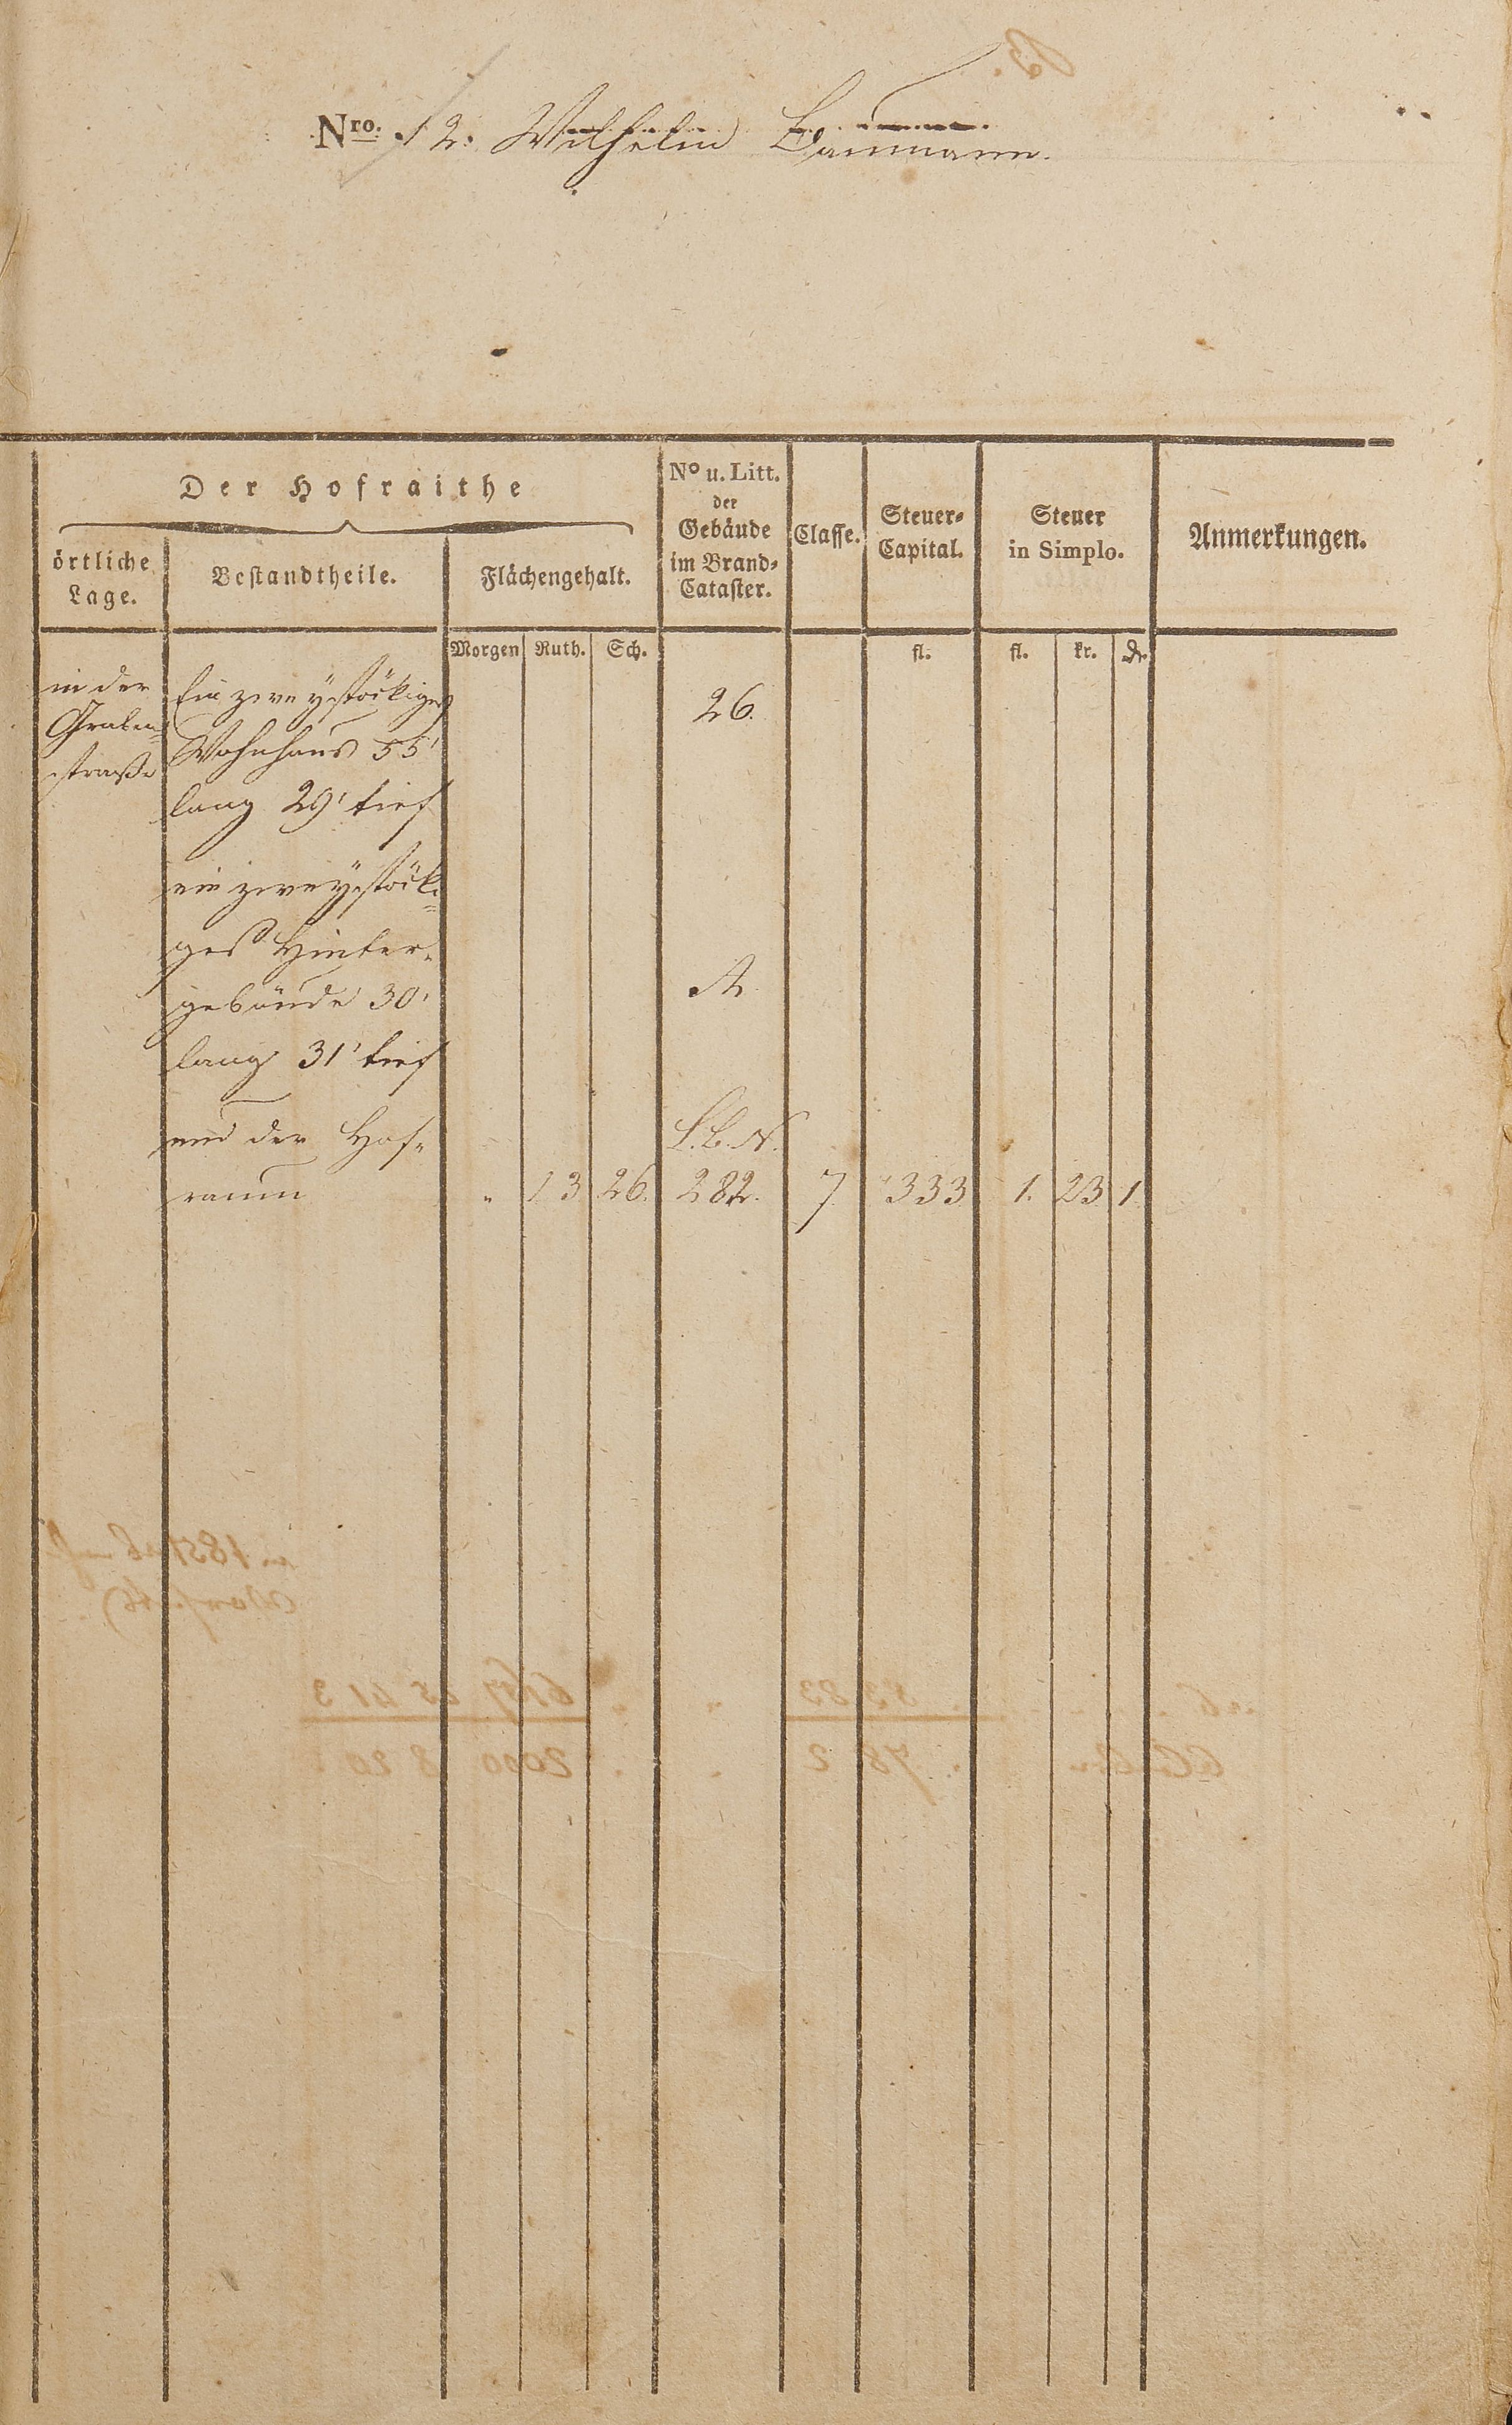 Nro. 12. Wilhelm Baumann.
Der Hofraithe
örtliche Lage.
Bestandtheile.
Flächengehalt.
No u. Litt. der Gebäude im Brand-Cataster.
Classe.
Steuer-Capital.
Steuer in Simplo.
Anmerkungen.
Morgen Ruth. Sch. fl. fl. kr.
in der Ein zweystöckiges 26.
Graben= Wohnhaus 55'
straße lang 29' tief
ein zweystöcki=
ges Hinter=
gebäude 30' A.
lang 31' tief
und der Hof= L.B.N.
raum " 13 26. 282. 7. 333 1. 23 1.